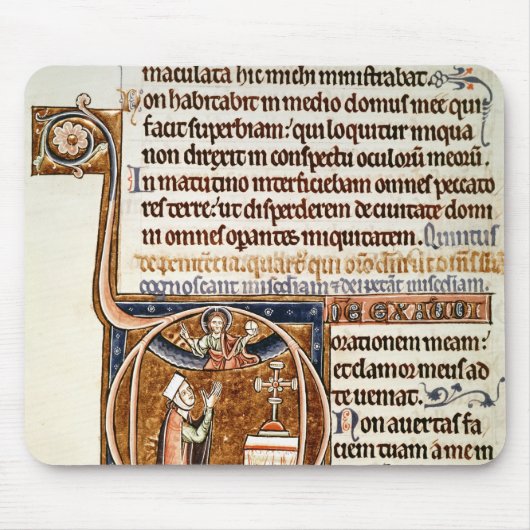 maculata hic michi ministrabat.
Non habitabit in medio domus mee qui
facit superbiam: qui loquitur iniqua
non direxit in conspectu oculorū meorū.
In matutino interficiebam omnes peccato
res terre: ut disperderem de ciuitate domi
ni omnes operantes iniquitatem. Quintus
de penitētia. quartꝰ qui
cognoscant
NE EXAUDI
orationem meam:
et clamor meus ad
te ueniat.
Non auertas fa
ciem tuam a me in